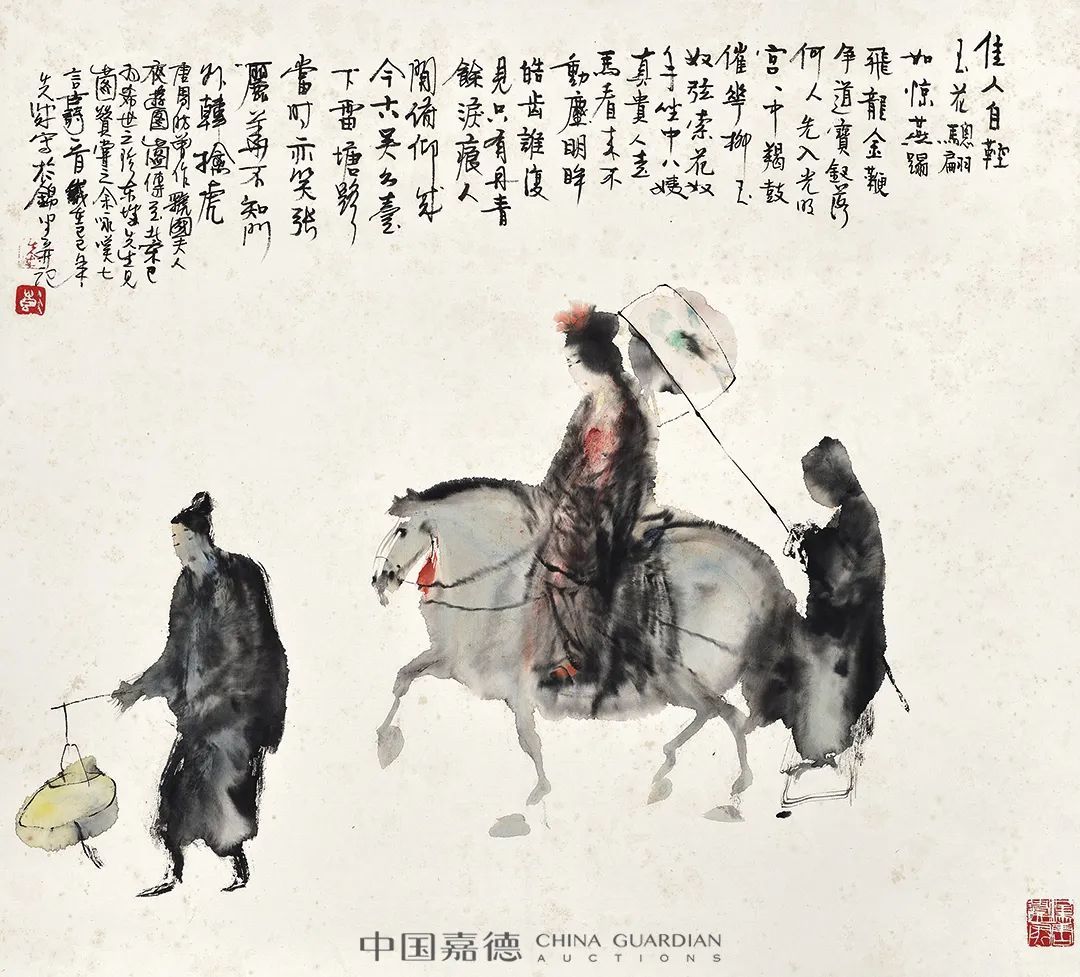 佳人自鞚
玉花驄翩
如惊燕蹋
飛龍金鞭
争道寶釵落
何人先入光明
宮〻中羯鼓
催華柳玉
奴弦索花奴
手坐中八姨
真貴人走
馬看来不
動塵明眸
皓齒誰復
見只有丹青
餘淚痕人
間俯仰成
今古吳公臺
下雷塘路
當時亦笑张
麗華不知門
外韓擒虎
唐周昉曾作虢國夫人
夜遊圖畫傳至北宋已
为希世之珍东坡先生見
畫贊賞之余咏嘆七
言詩一首 己巳年
先誠寫於錦中并記
中国嘉德 CHINA GUARDIAN
AUCTIONS